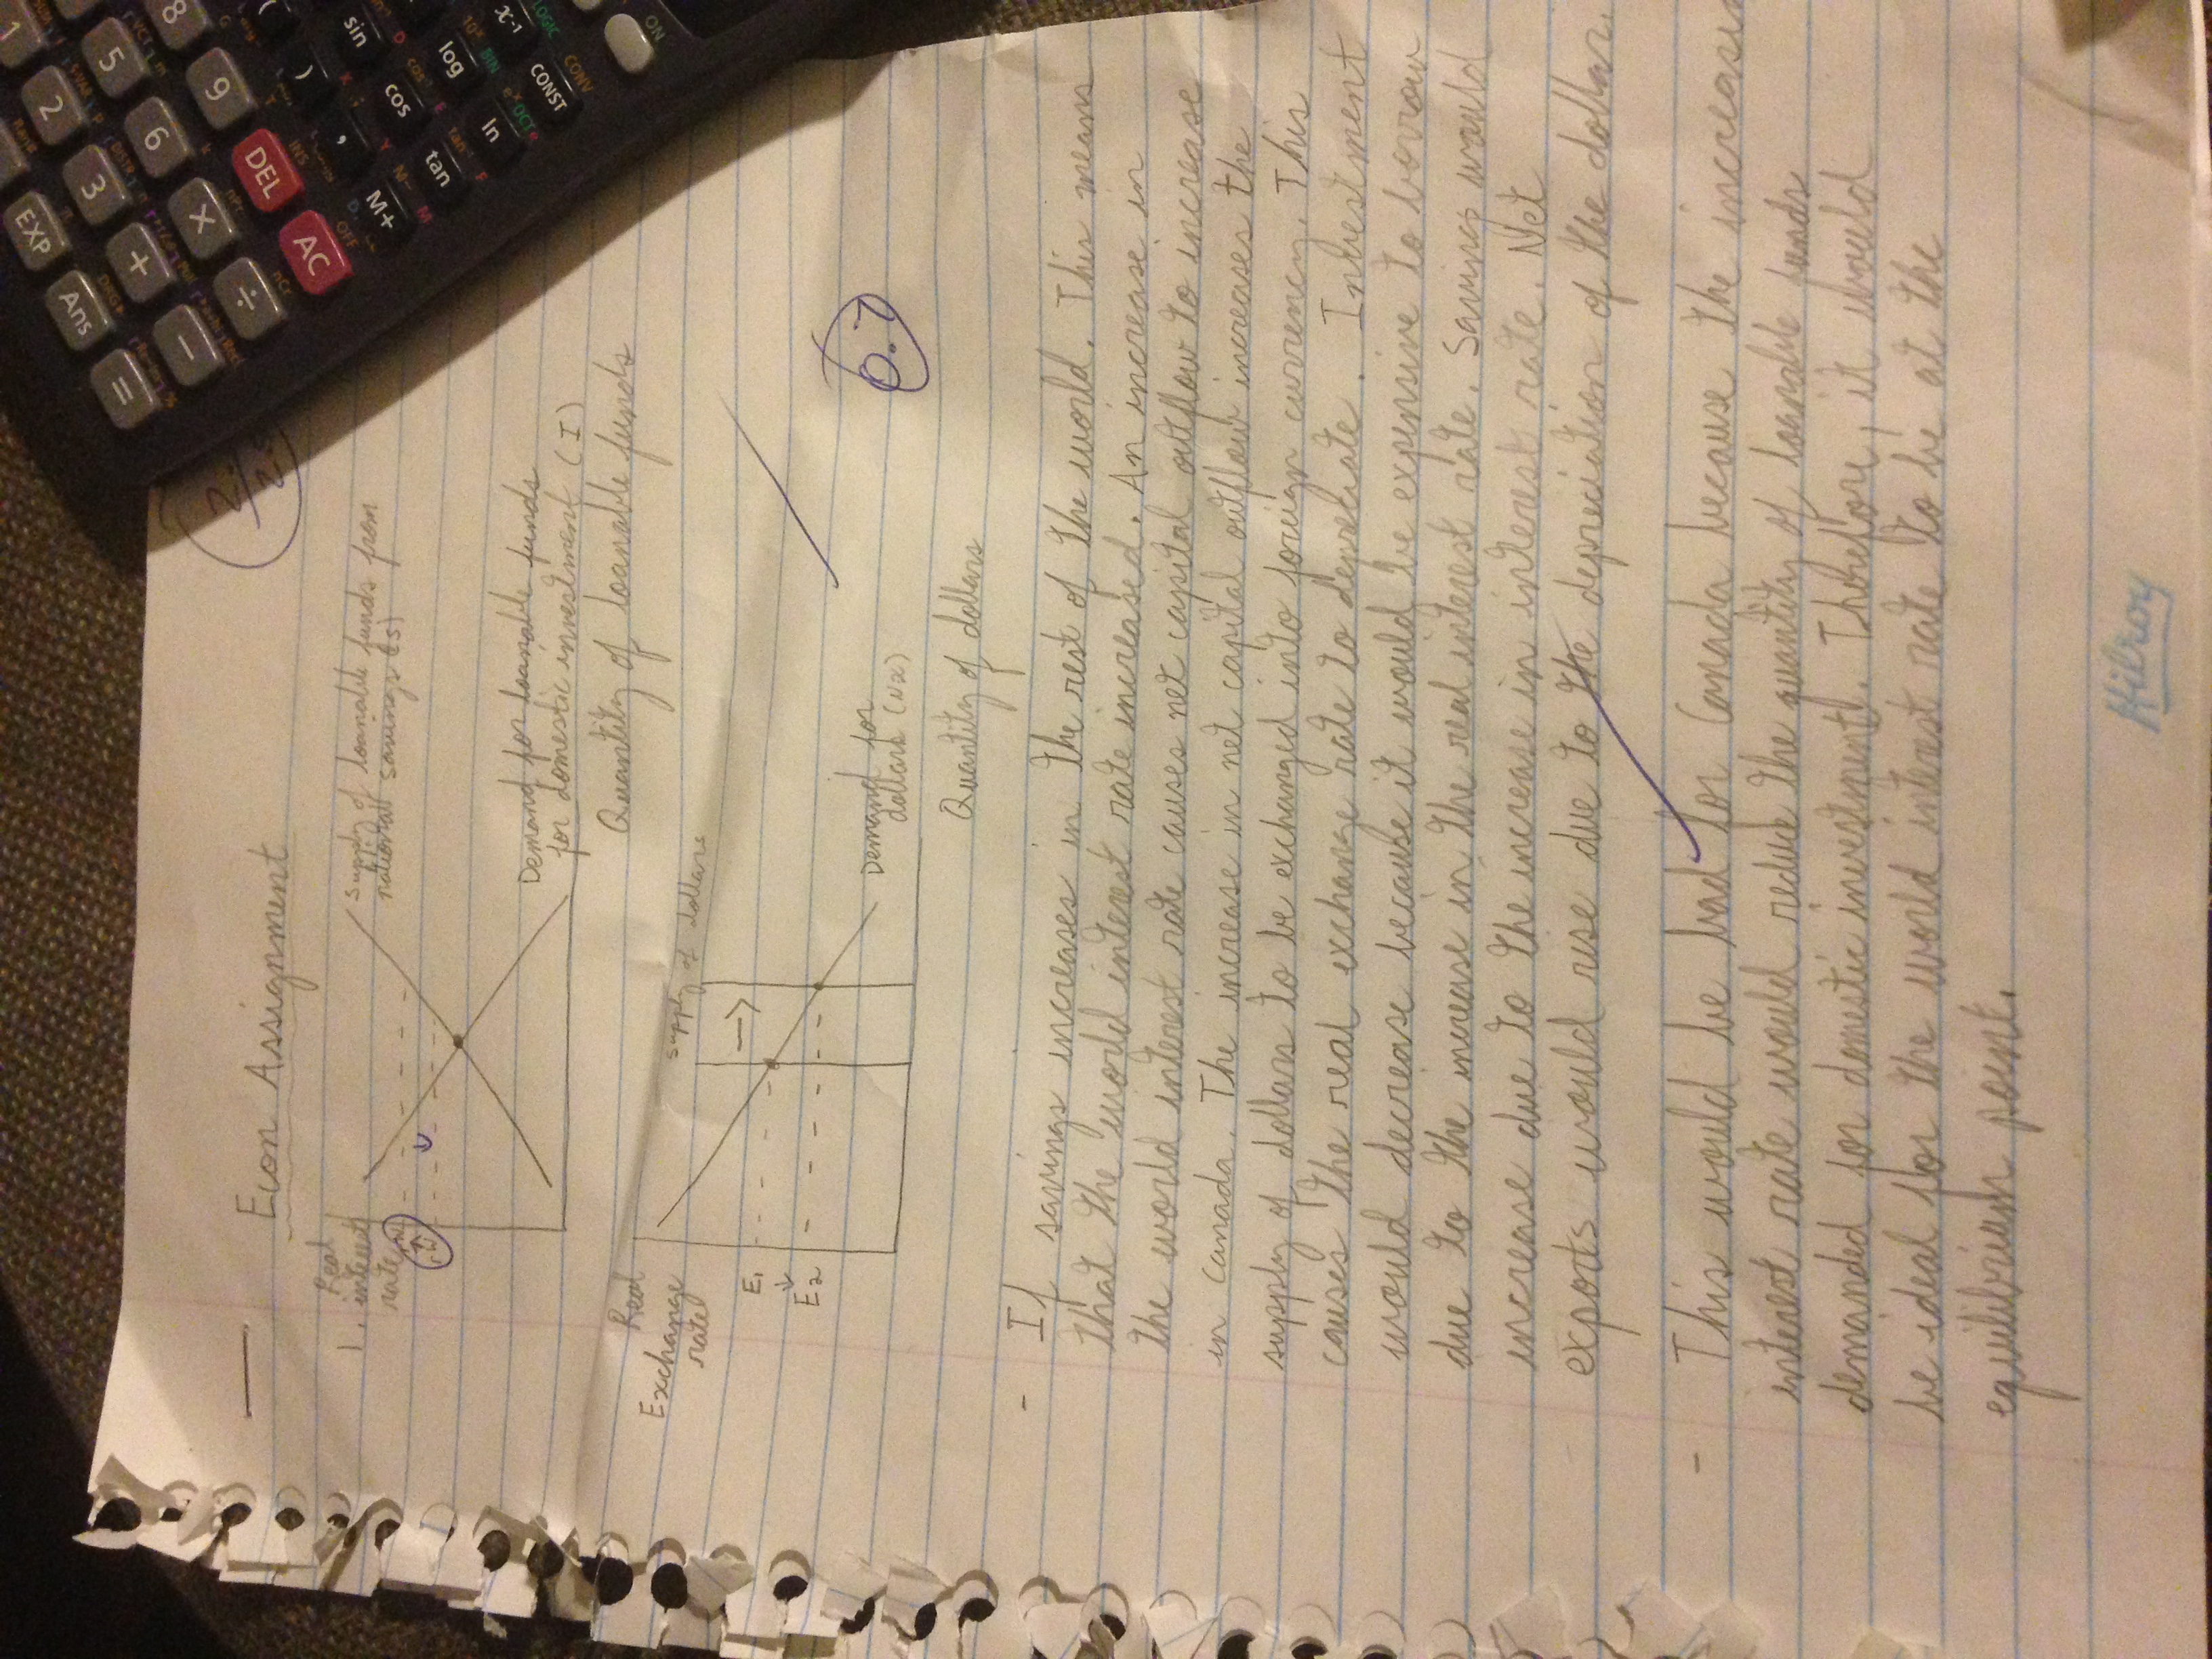 Econ Assignment
Real
1. interest
rate
supply of loanable funds from
national savings (s)
Demand for loanable funds
for domestic investment (I)
Quantity of loanable funds
Real
Exchange
rate
supply of dollars
E1
E2
Demand for
dollars (NX)
Quantity of dollars
0.7
- If savings increases in the rest of the world. This mean
that the world interest rate increased. An increase in
the world interest rate causes net capital outflow to increase
in Canada. The increase in net capital outflow increases the
supply of dollars to be exchanged into foreign currency. This
causes the real exchange rate to depreciate. Investment
would decrease because it would be expensive to borrow
due to the increase in the real interest rate. Savings would
increase due to the increase in interest rate. Net
exports would rise due to the depreciation of the dollar.
- This would be bad for Canada because the increase
interest rate would reduce the quantity of loanable funds
demanded for domestic investment. Therefore, it would
be ideal for the world interest rate to be at the
equilibrium point.
Hilroy
1
2
3
5
6
8
9
(
)
,
DEL
AC
M+
×
÷
+
−
=
EXP
Ans
sin
cos
tan
log
ln
x-1
CONST
ON
LOGIC
CONV
BIN
OCT
INS
OFF
nPr
nCr